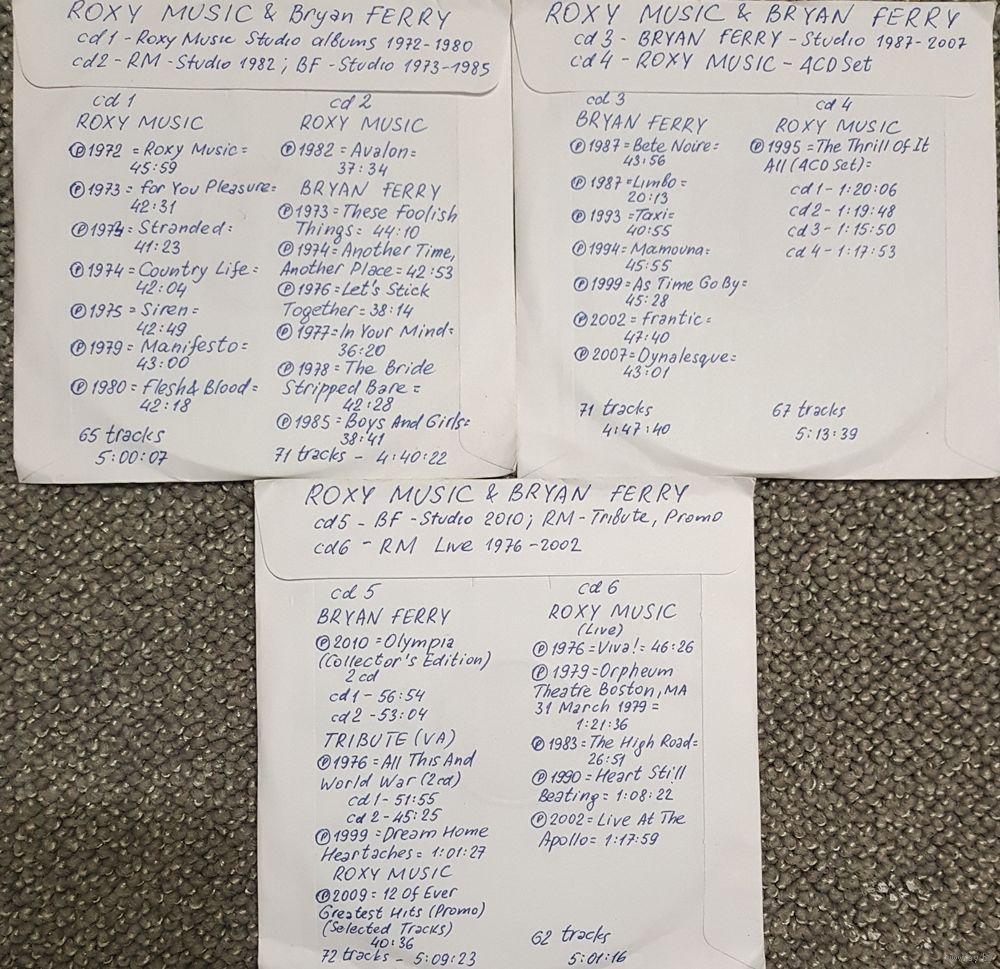 ROXY MUSIC & Bryan FERRY
cd1 - Roxy Music Studio albums 1972-1980
cd2 - RM - Studio 1982; BF - Studio 1973-1985
cd1
ROXY MUSIC
Ⓟ1972 = Roxy Music =
45:59
Ⓟ1973 = For You Pleasure =
42:31
Ⓟ1973 = Stranded =
41:23
Ⓟ1974 = Country Life =
42:04
Ⓟ1975 = Siren =
42:49
Ⓟ1979 = Manifesto =
43:00
Ⓟ1980 = Flesh & Blood =
42:18
65 tracks
5:00:07
cd2
ROXY MUSIC
Ⓟ1982 = Avalon =
37:34
BRYAN FERRY
Ⓟ1973 = These Foolish
Things = 44:10
Ⓟ1974 = Another Time,
Another Place = 42:53
Ⓟ1976 = Let's Stick
Together = 38:14
Ⓟ1977 = In Your Mind =
36:20
Ⓟ1978 = The Bride
Stripped Bare =
42:28
Ⓟ1985 = Boys And Girls =
38:41
71 tracks - 4:40:22
ROXY MUSIC & BRYAN FERRY
cd3 - BRYAN FERRY - Studio 1987-2007
cd4 - ROXY MUSIC - 4CD Set
cd3
BRYAN FERRY
Ⓟ1987 = Bete Noire =
43:56
Ⓟ1987 = Limbo =
20:13
Ⓟ1993 = Taxi =
40:55
Ⓟ1994 = Mamouna =
45:55
Ⓟ1999 = As Time Go By =
45:28
Ⓟ2002 = Frantic =
47:40
Ⓟ2007 = Dynalesque =
43:01
71 tracks
4:47:40
cd4
ROXY MUSIC
Ⓟ1995 = The Thrill Of It
All (4CD Set) =
cd1 - 1:20:06
cd2 - 1:19:48
cd3 - 1:15:50
cd4 - 1:17:53
67 tracks
5:13:39
ROXY MUSIC & BRYAN FERRY
cd5 - BF - Studio 2010; RM - Tribute, Promo
cd6 - RM Live 1976-2002
cd5
BRYAN FERRY
Ⓟ2010 = Olympia
(Collector's Edition)
2cd
cd1 - 56:54
cd2 - 53:04
TRIBUTE (VA)
Ⓟ1976 = All This And
World War (2cd)
cd1 - 51:55
cd2 - 45:25
Ⓟ1999 = Dream Home
Heartaches = 1:01:27
ROXY MUSIC
Ⓟ2009 = 12 Of Ever
Greatest Hits (Promo)
(Selected Tracks)
40:36
72 tracks - 5:09:23
cd6
ROXY MUSIC
(Live)
Ⓟ1976 = Viva! = 46:26
Ⓟ1979 = Orpheum
Theatre Boston, MA
31 March 1979 =
1:21:36
Ⓟ1983 = The High Road =
26:51
Ⓟ1990 = Heart Still
Beating = 1:08:22
Ⓟ2002 = Live At The
Apollo = 1:17:59
62 tracks
5:01:16